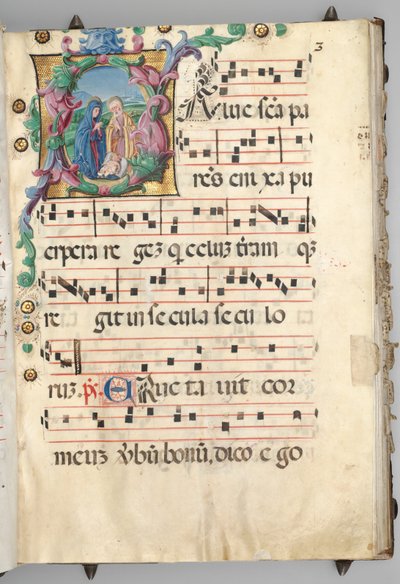 3
SAlue scā pa
rēs eni xa pu
erpera re gez q̄ celuz t̄ram qz
re git in se cula se cu lo
ruz. ps̄. ERuc ta uit cor
meuz v̄bū bonū, dico e go